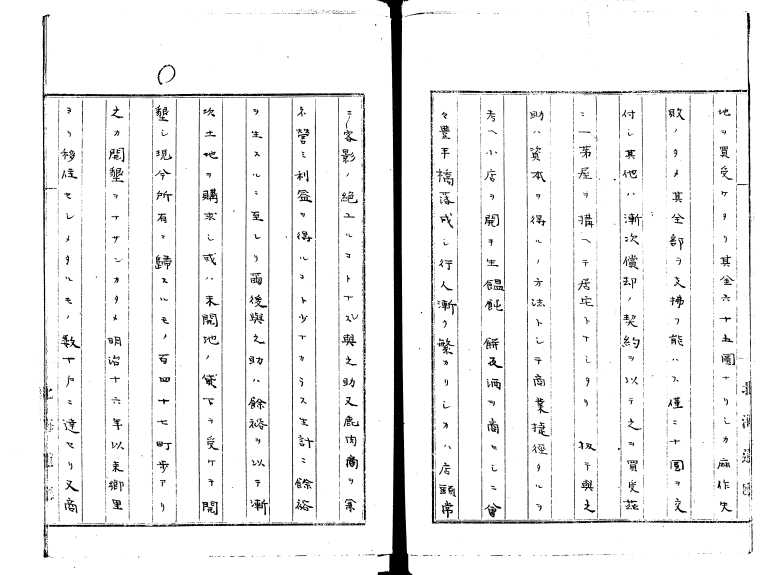 地ヲ買受ケタリ其金六十五圓ナリシカ麻作失
敗ノタメ其全部ヲ支拂フ能ハス僅ニ十圓ヲ交
付シ其他ハ漸次償却ノ契約ヲ以テ之ヲ買受茲
ニ一茅屋ヲ構ヘテ居宅トナシタリ 扨テ與之
助ハ資本ヲ得ルノ方法トシテ商業捷徑タルヲ
考ヘ小店ヲ開キ生饂飩 餅及酒ヲ商セシニ會
々豊平橋落成シ行人漸ク繁カリシカハ店頭常
ニ客影ノ絶ユルコトナシ與之助又鹿肉商ヲ兼
ネ營ミ利益ヲ得ルコト少ナカラス生計ニ餘裕
ヲ生スルニ至レリ爾後與之助ハ餘裕ヲ以テ漸
次土地ヲ購求シ或ハ未開地ノ貸下ヲ受ケテ開
墾シ現今所有ニ歸スルモノ百四十七町歩アリ
之カ開墾ヲナサンカタメ明治十六年以来郷里
ヨリ移住セシメタルモノ数十戸ニ達セリ又商